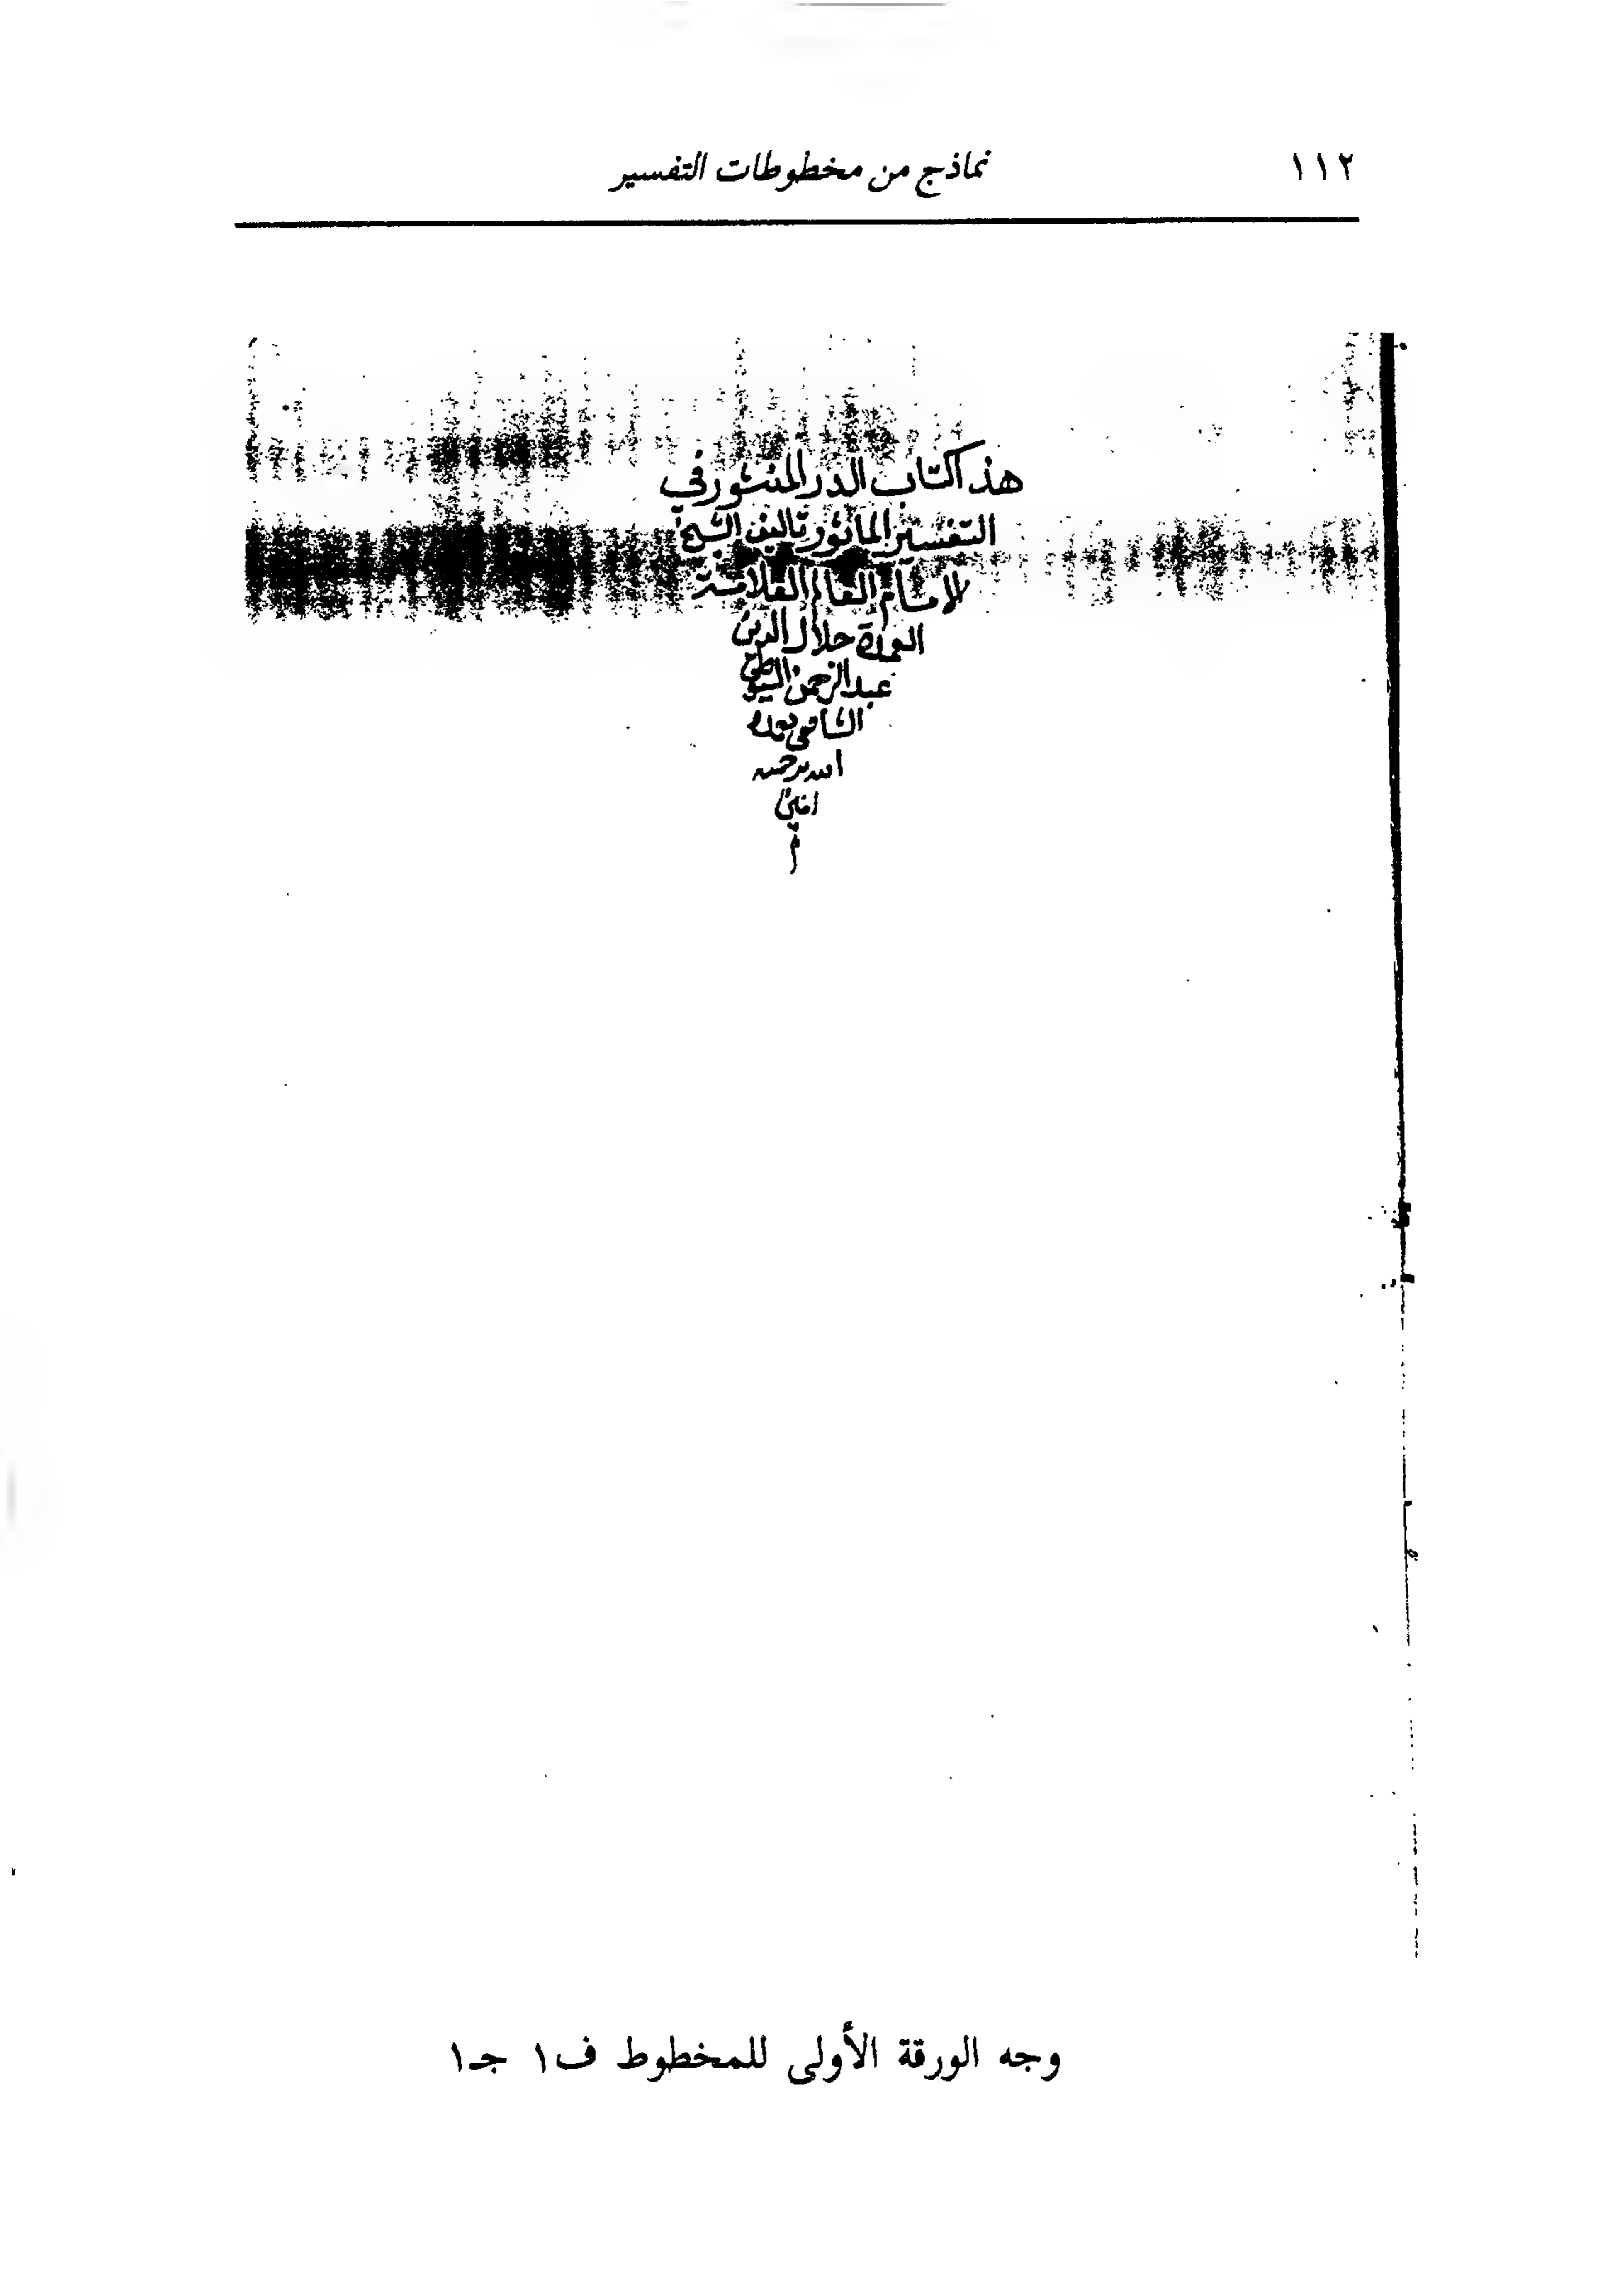 ١١٢
نماذج من مخطوطات التفسير
هذا كتاب الدر المنثور في
التفسير المأثور تاليف الشيخ
لامام العالم العلامة
العمدة جلال الدين
عبد الرحمن السيوطي
الشافعي تغمده
الله برحمته
امين
م
وجه الورقة الأولى للمخطوط ف١ جـ١